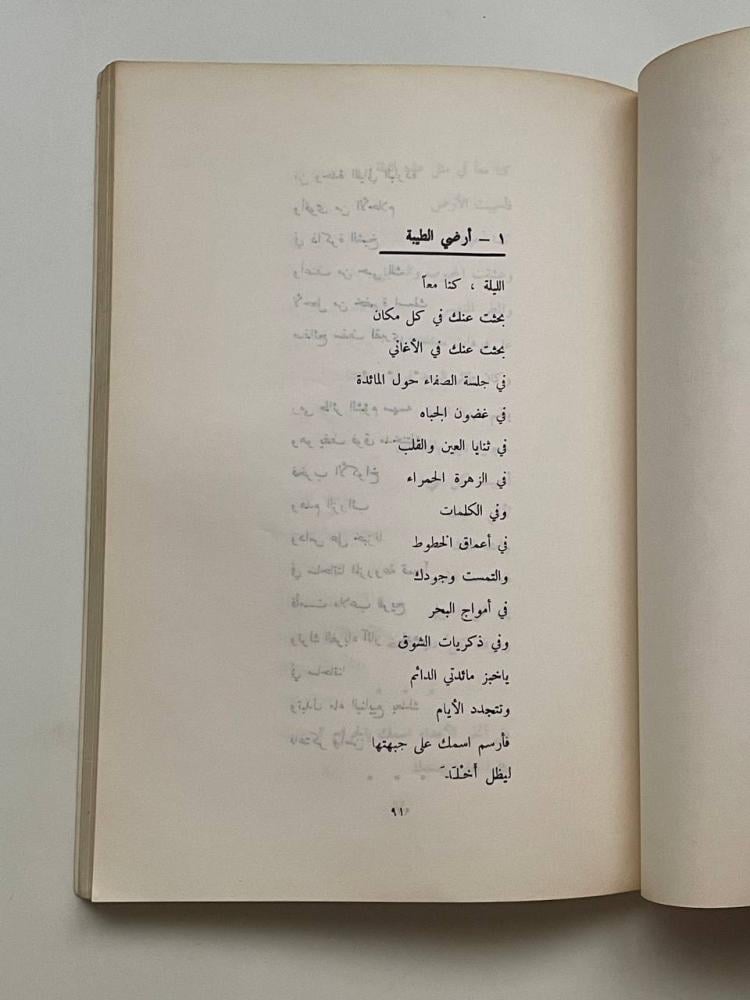 ١ - أرضي الطيبة
الليلة ، كنا معاً
بحثت عنك في كل مكان
بحثت عنك في الأغاني
في جلسة الصفاء حول المائدة
في غضون الجباه
في ثنايا العين والقلب
في الزهرة الحمراء
وفي الكلمات
في أعماق الخطوط
والتمست وجودك
في أمواج البحر
وفي ذكريات الشوق
ياخبز مائدتي الدائم
وتتجدد الأيام
فأرسم اسمك على جبهتها
ليظل
٩١